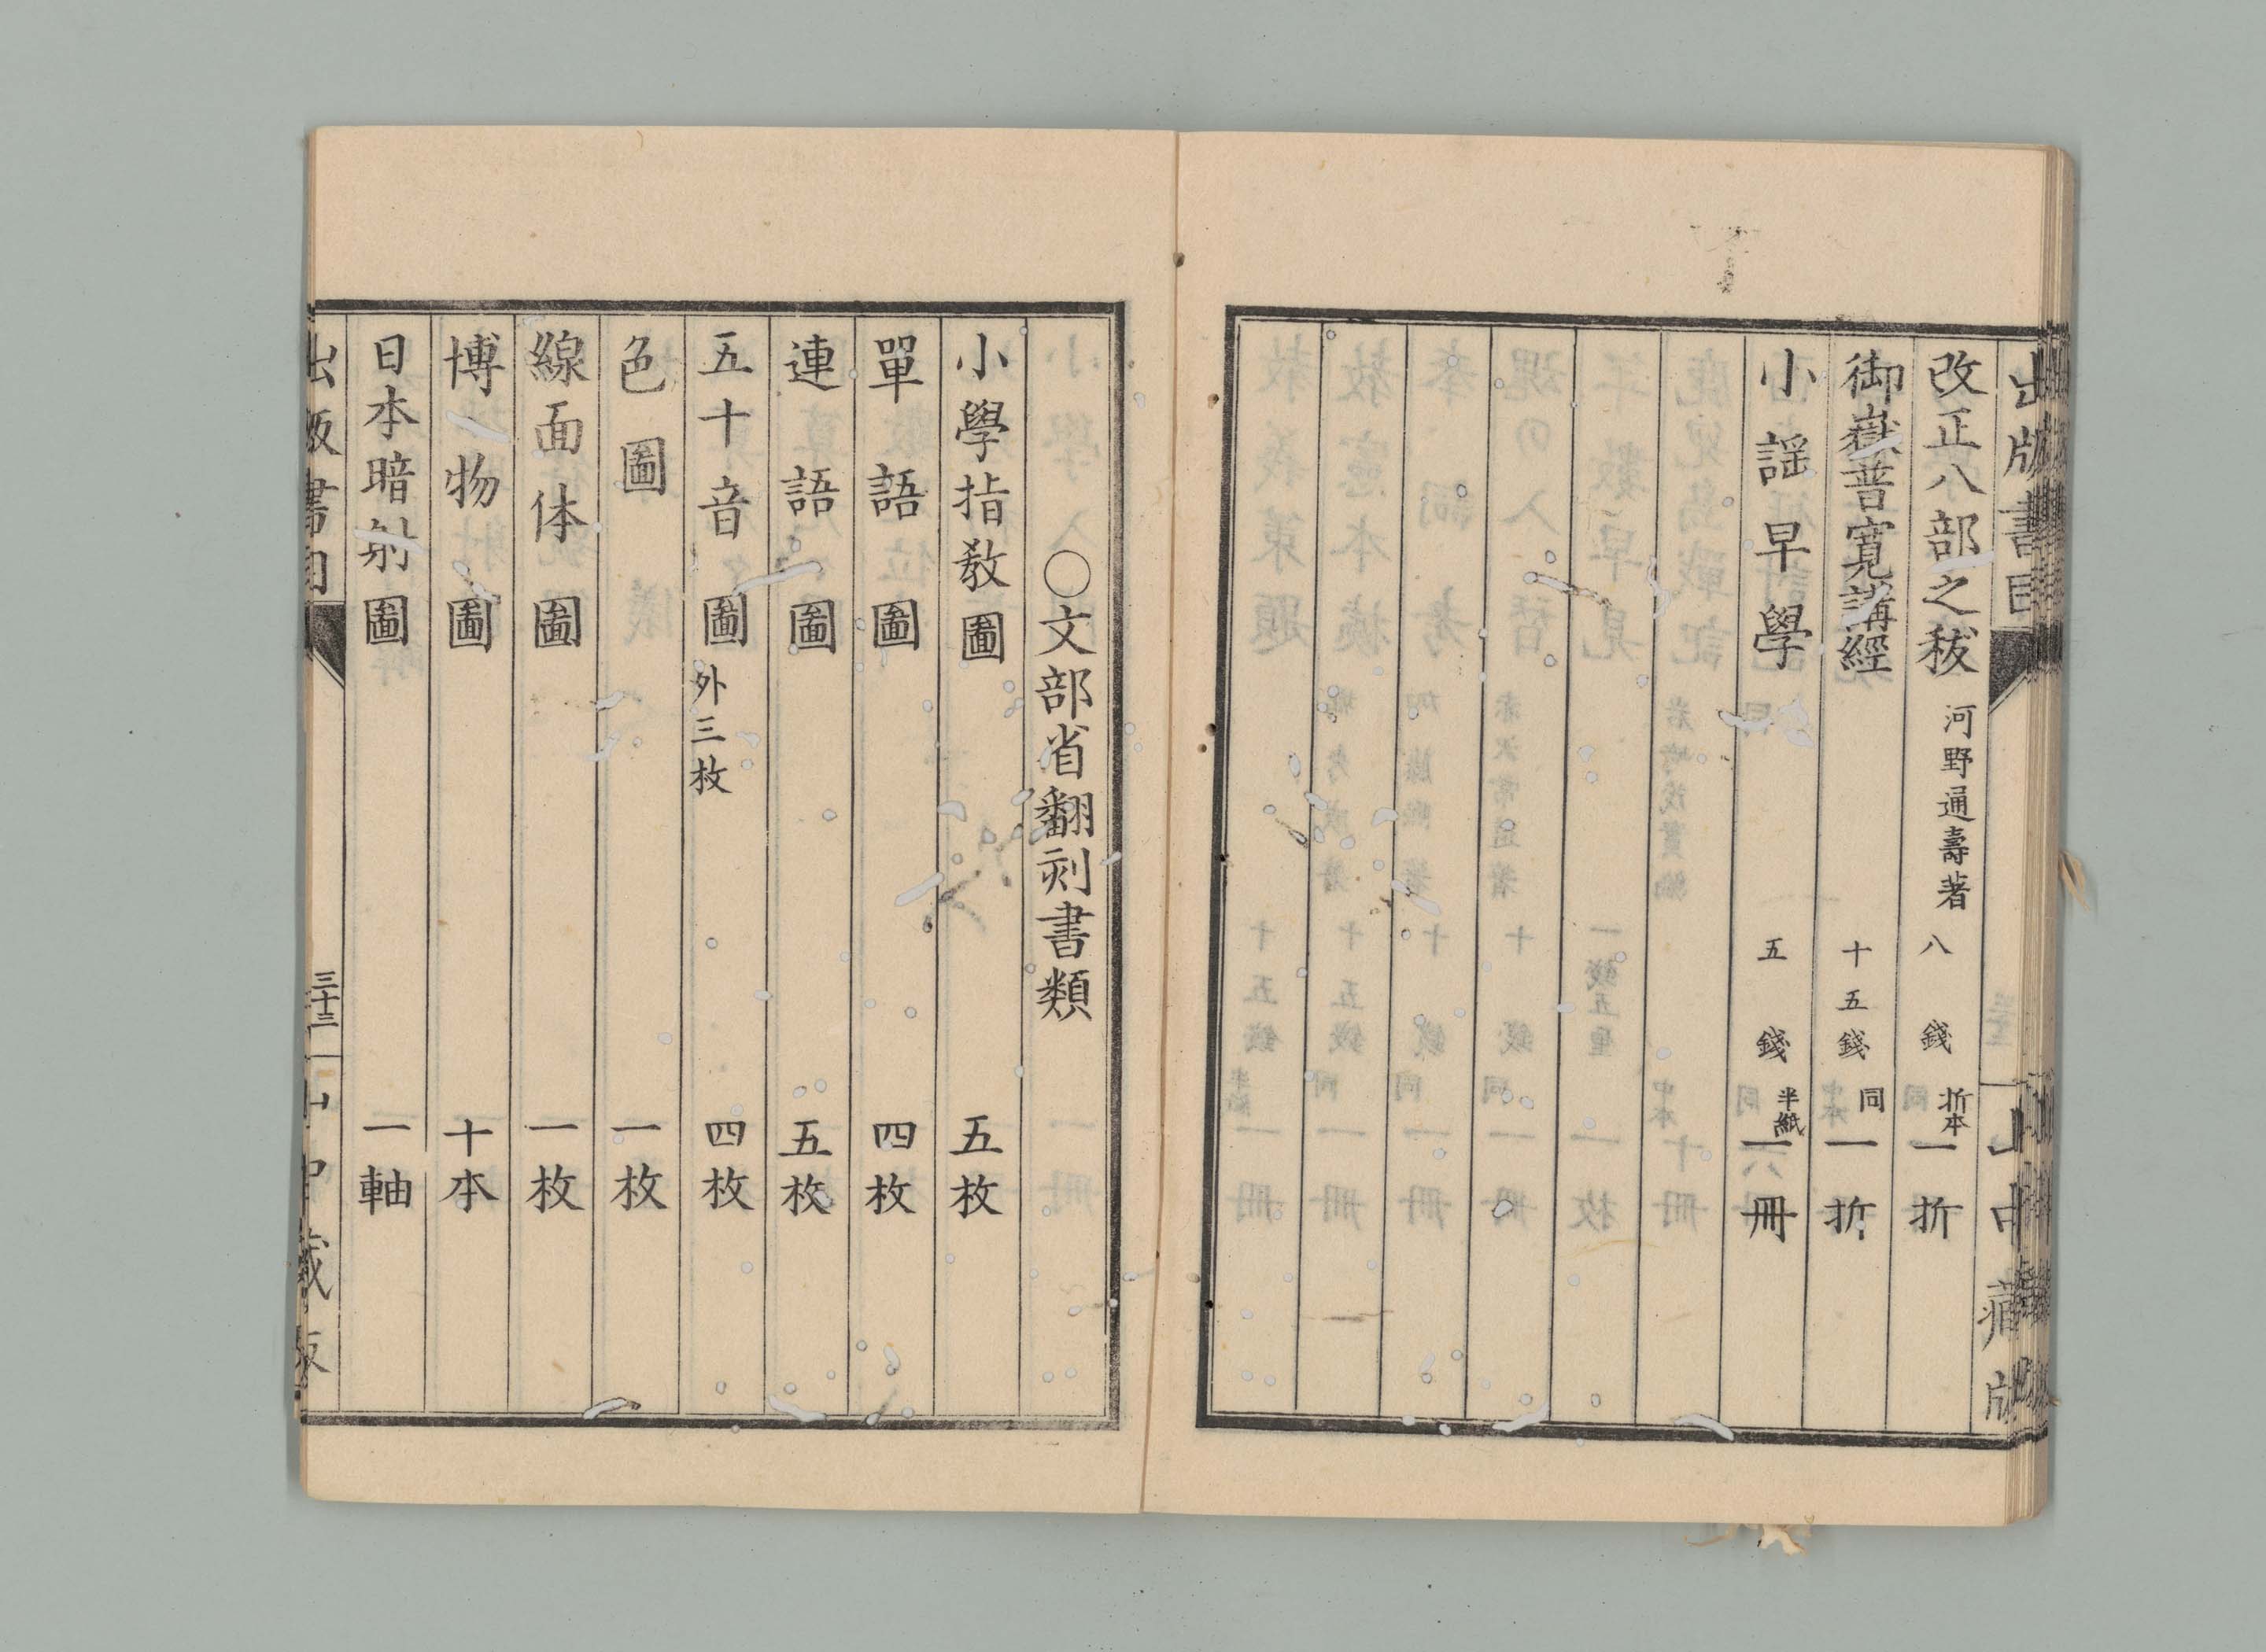 出版書目
山中藏版
改正八部之秡 河野通壽著 八錢 折本 一折
御嶽普寛講經 十五錢 同 一折
小謡早學 五錢 半紙 一冊
〇文部省翻刻書類
小學指教圖 五枚
單語圖 四枚
連語圖 五枚
五十音圖 外三枚 四枚
色圖 一枚
線面体圖 一枚
博物圖 十本
日本暗射圖 一軸
出版書目
三十三
山中藏版